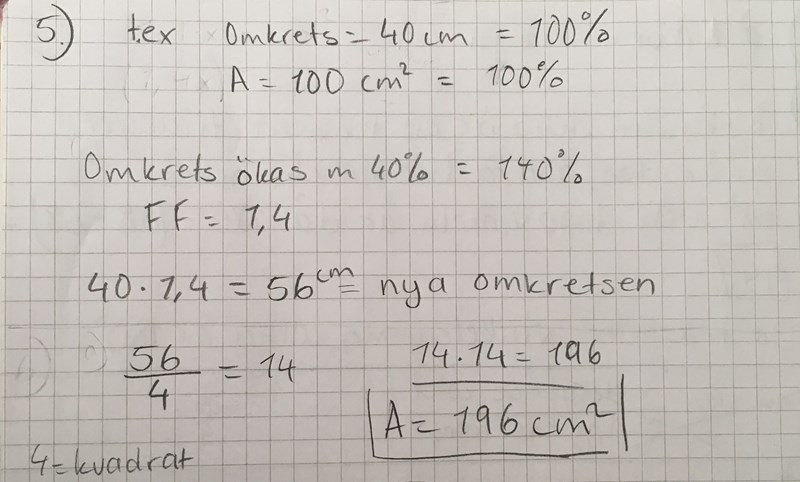 5.) tex Omkrets = 40 cm = 100%
A = 100 cm² = 100%
Omkrets ökas m 40% = 140%
FF = 1,4
40 · 1,4 = 56 cm = nya omkretsen
56/4 = 14
14 · 14 = 196
A = 196 cm²
4 = kvadrat